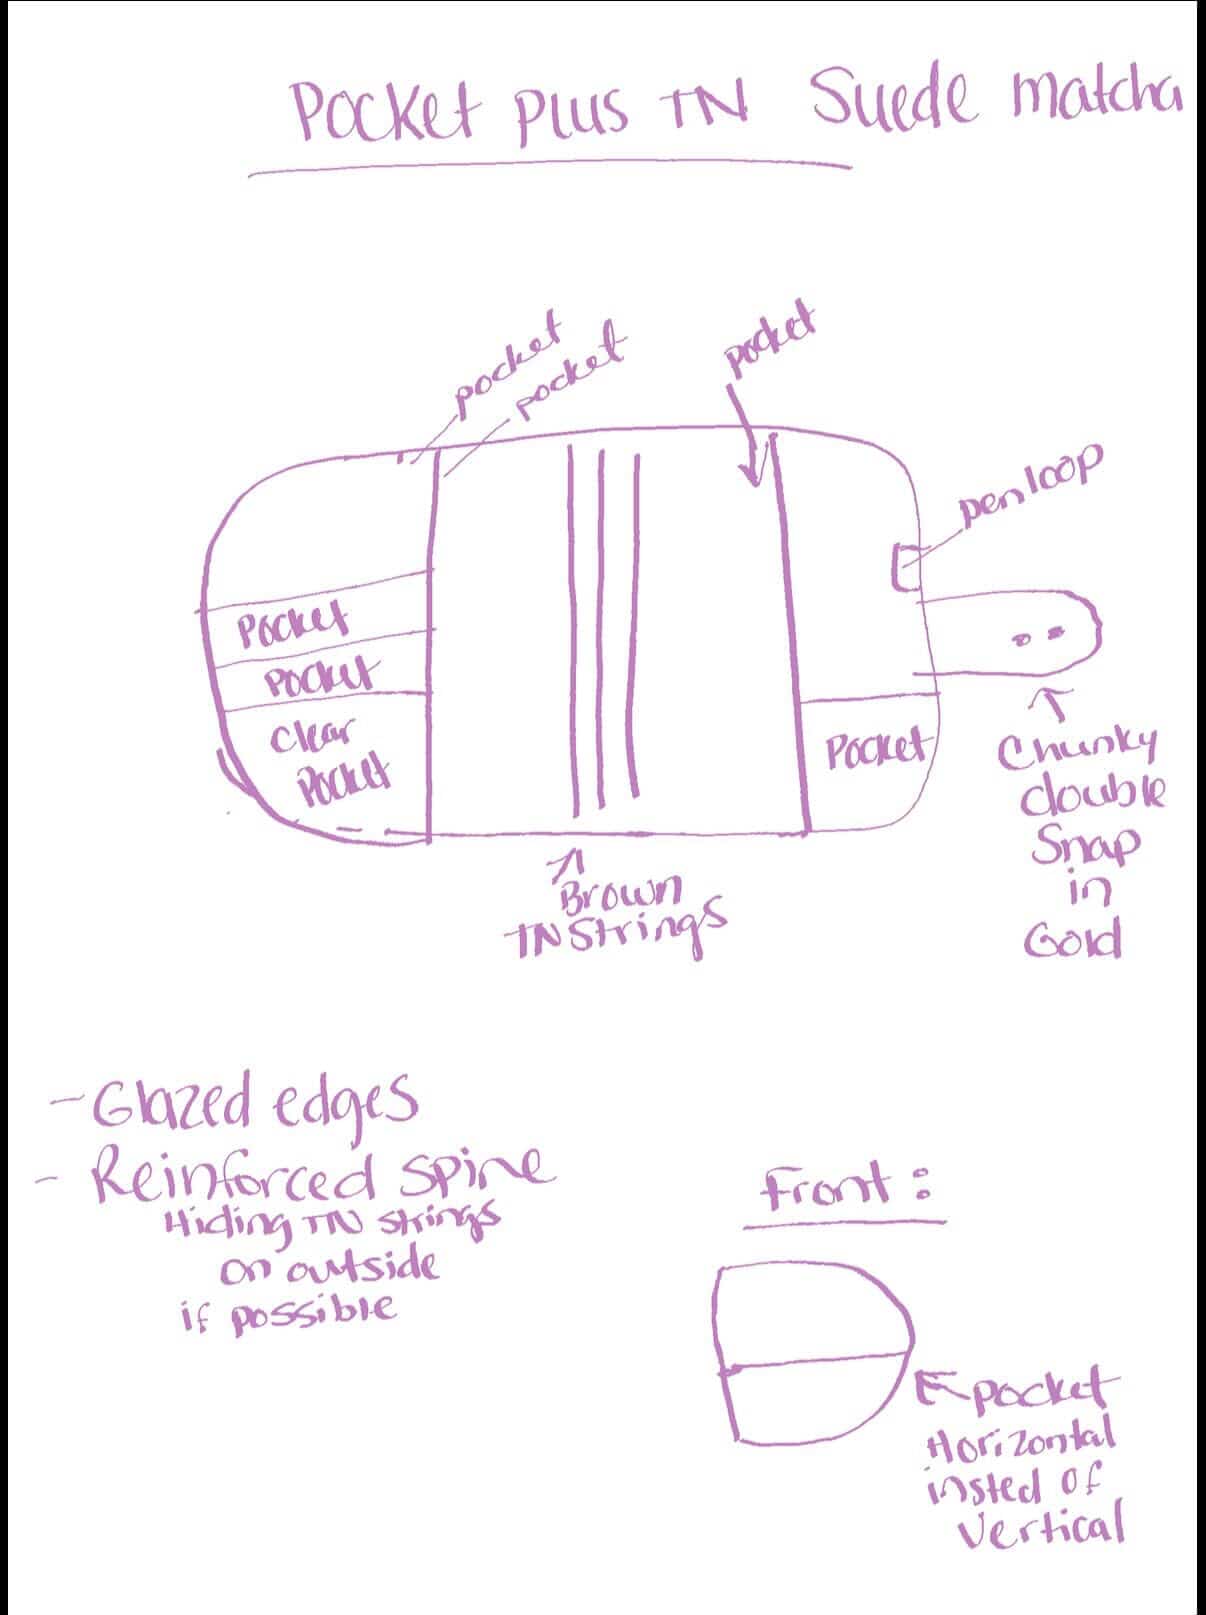 Pocket Plus TN Suede matcha
pocket
pocket
pocket
pen loop
Pocket
Pocket
Clear
Pocket
Pocket
Chunky
double
Snap
in
Gold
Brown
TN Strings
- Glazed edges
- Reinforced spine
Hiding TN strings
on outside
if possible
Front:
pocket
Horizontal
insted of
Vertical